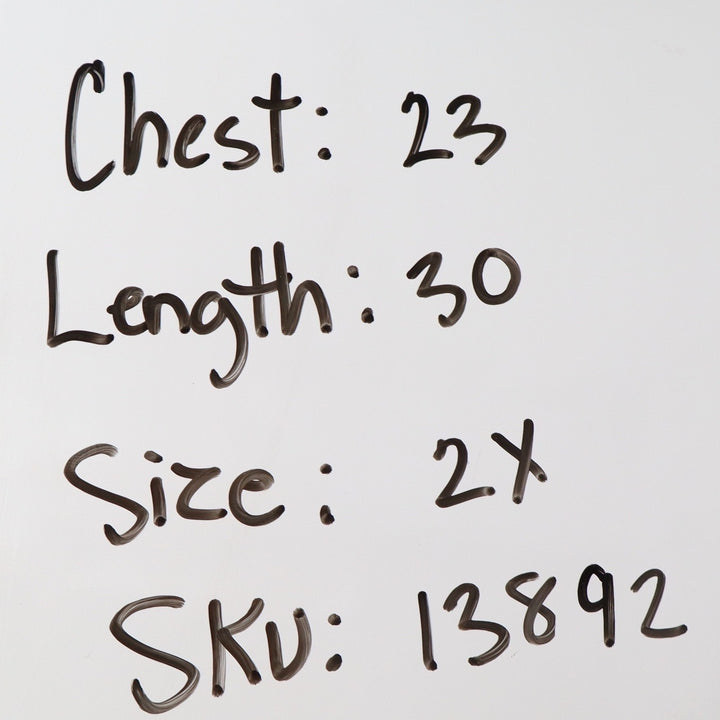 Chest: 23
Length: 30
Size: 2X
SKU: 13892